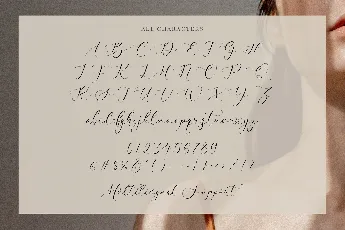 ALL CHARACTERS
A B C D E F G H
I J K L M N O P Q
R S T U V W X Y Z
abcdefghijklmnopqrstuvwxyz
0123456789
Multilingual Support